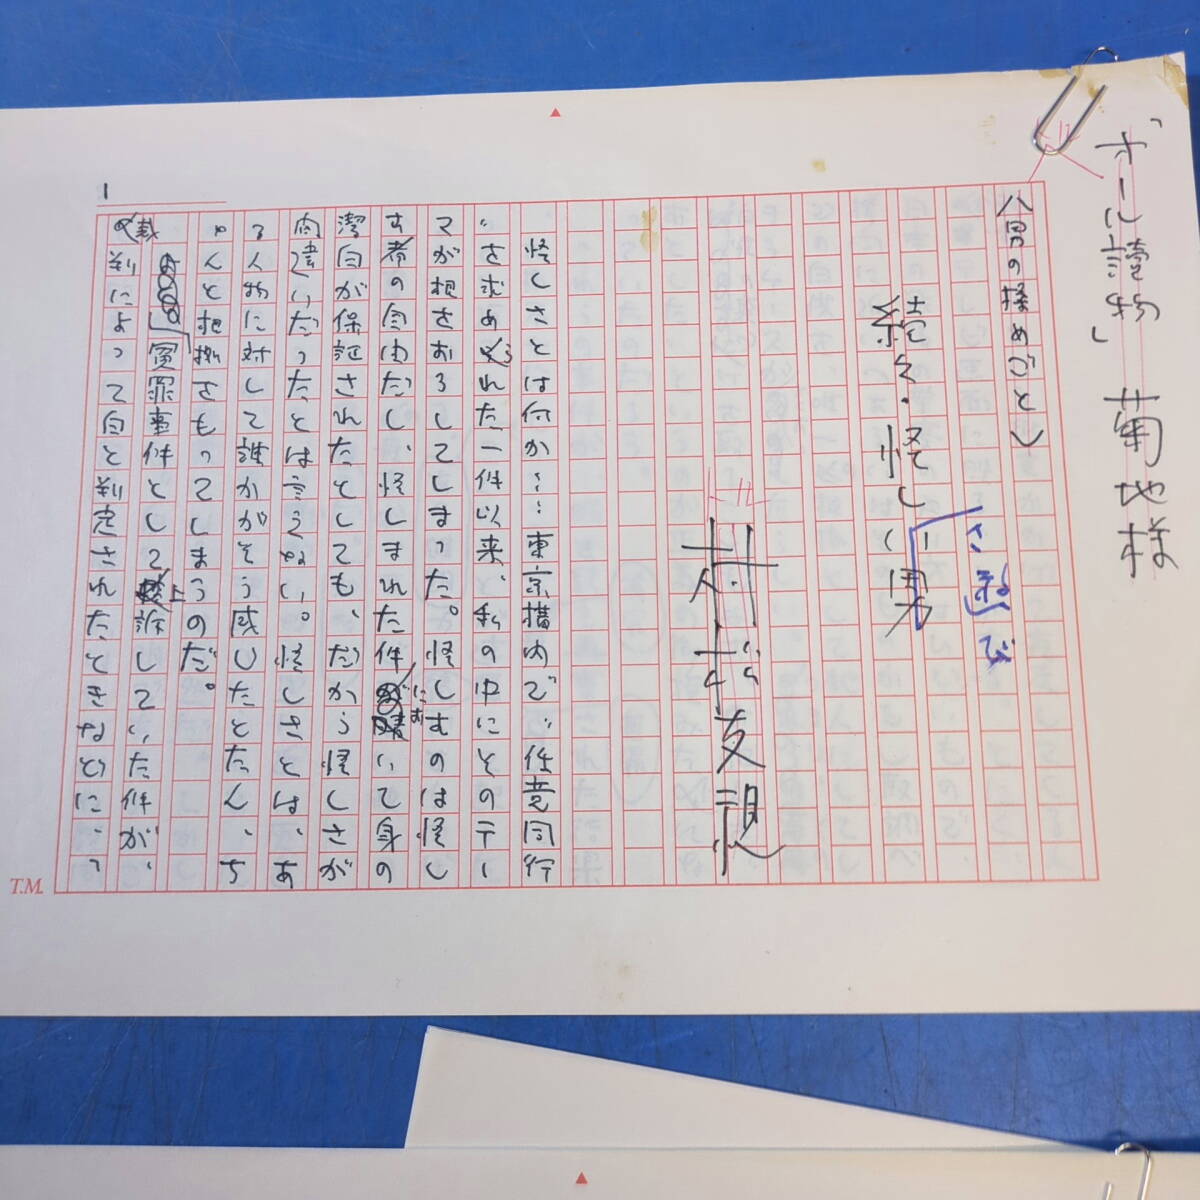 「オール讀物」 菊地様
八胃の揉めごとし
続々・怪しい男
さ遊び
村松友視
怪しさとは何か……東京構内で、任意同行
を求められた一件以来、私の中にそのテー
マが根をおろしてしまった。怪しむのは怪し
む者の会わだし、怪しまれた件にお いて身の
潔白が保証されたとしても、だから怪しさが
肉違いだったとは言うない。怪しさとは、あ
る人物に対して誰かがそう感じたとたん、ち
ゃんと根拠をもってしまうのだ。
冤罪事件として上訴していた件が、
裁判によって白と判定されたときなどに、つ
1
T.M.